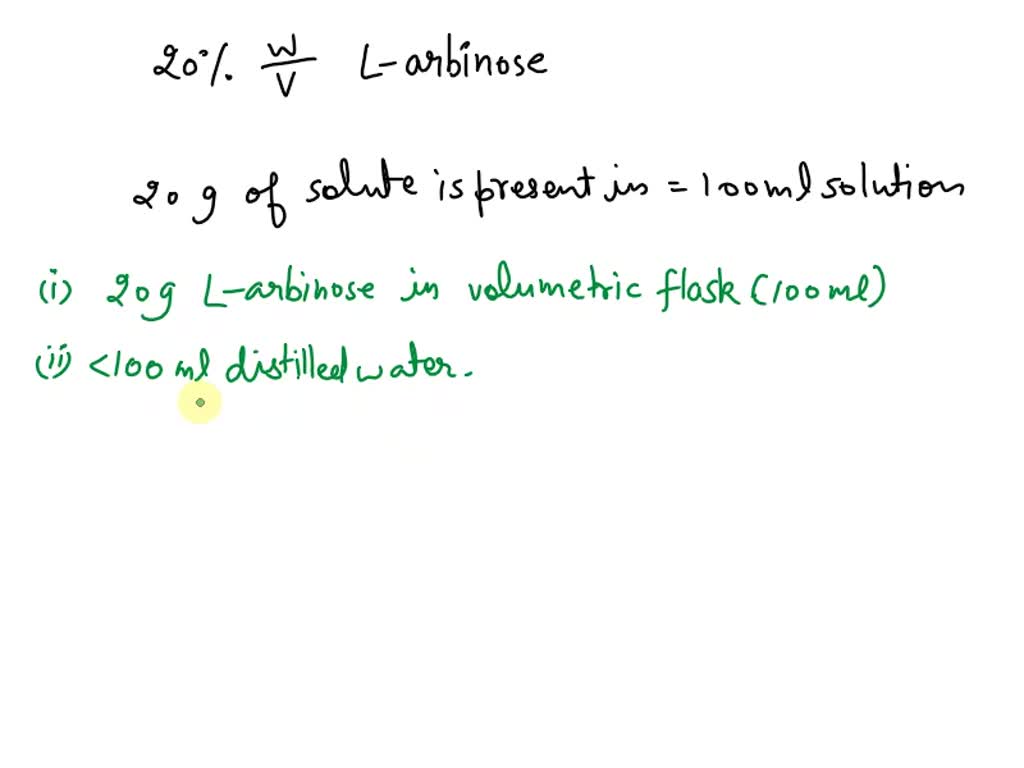 20% W/V L-arbinose
20 g of solute is present in = 100 ml solution
(i) 20g L-arbinose in volumetric flask (100 ml)
(ii) <100 ml distilled water.